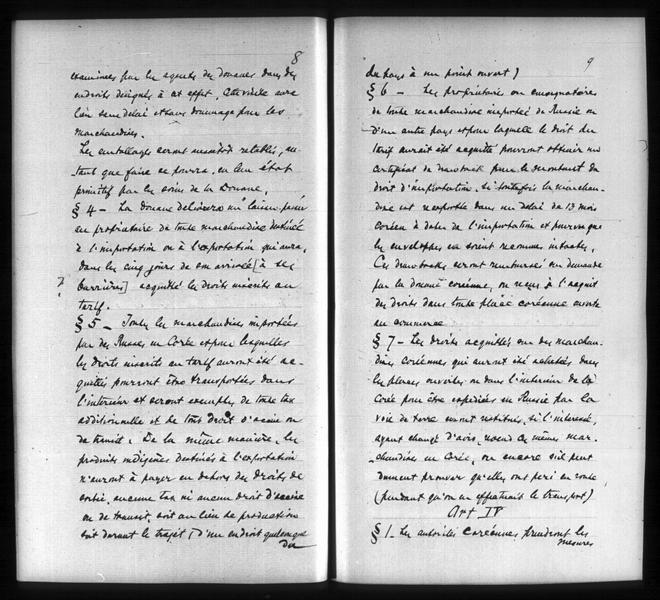 8
examinées par les agents des douanes dans des
endroits désignés à cet effet. Cette visite aura
lieu sans délai et sans dommage pour les
marchandises.
Les emballages seront aussitôt rétablis, au-
tant que faire se pourra, en leur état
primitif par les soins de la Douane.
§ 4 - La Douane délivrera un laissez passer
au propriétaire de toute marchandise destinée
à l'importation ou à l'exportation qui aura,
dans les cinq jours de son arrivée [à ses
barrières] acquitté les droits inscrits au
tarif.
§ 5 - Toutes les marchandises importées
par des Russes en Corée et pour lesquelles
les droits inscrits au tarif auront été ac-
quittés pourront être transportées dans
l'intérieur et seront exemptes de toute taxe
additionnelle et de tous droits d'accise ou
de transit. De la même manière, les
produits indigènes destinés à l'exportation
n'auront à payer en dehors des droits de
sortie, aucune taxe ni aucun droit d'accise
ou de transit, soit au lieu de production
soit durant le trajet (d'un endroit quelconque
du
9
du pays à un point ouvert)
§ 6 - Les propriétaires ou consignataires
de toute marchandise importée de Russie ou
d'un autre pays et pour laquelle le droit du
tarif aurait été acquitté pourront obtenir un
certificat de drawback pour le montant du
droit d'importation, si toutefois la marchan-
dise est réexportée dans un délai de 13 mois
coréen à dater de l'importation et pourvu que
les enveloppes en soient reconnues intactes.
Ces drawbacks seront remboursés sur demande
par la douane coréenne, ou reçus à l'acquit
des droits dans toute place coréenne ouverte
au commerce
§ 7 - Les droits acquittés sur des marchan-
dises Coréennes qui auront été achetées dans
les places ouvertes ou dans l'intérieur de la
Corée pour être expédiées en Russie par la
voie de terre seront restitués, si l'intéressé,
ayant changé d'avis, ces mêmes mar-
chandises en Corée, ou encore s'il peut
dûment prouver qu'elles ont péri en route
(pendant qu'on en effectuait le transport)
Art IV
§ 1 - Les autorités Coréennes prendront les
mesures